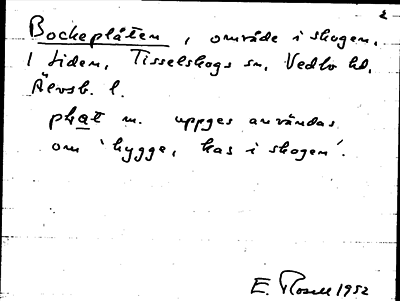 2
Bockeplåten, område i skogen.
I Liden, Tisselskogs sn, Vedbo hd,
Älvsb. l.
plat m. uppges användas
om 'hygge, kas i skogen'.
E. Rosell 1952